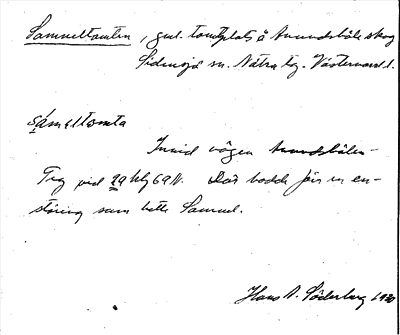 Samueltomten, gml. tomtplats å Amundsböle skog
Sidensjö sn. Nätra tg. Västernorrl. l.
sámeltomta
Invid vägen Amundsbölen-
Teg vid 69N. Där bodde förr en en-
störing som hette Samuel.
Hans A. Söderberg 1930